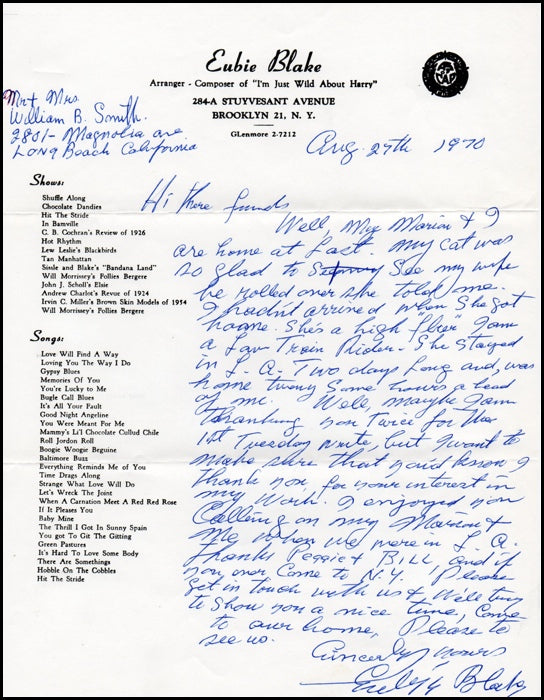 Eubie Blake
Arranger - Composer of "I'm Just Wild About Harry"
284-A STUYVESANT AVENUE
BROOKLYN 21, N. Y.
GLenmore 2-7212
Mr + Mrs
William B. Smith.
2801 - Magnolia ave
Long Beach California
Aug. 27th 1970
Shows:
Shuffle Along
Chocolate Dandies
Hit The Stride
In Bamville
C. B. Cochran's Review of 1926
Hot Rhythm
Lew Leslie's Blackbirds
Tan Manhattan
Sissle and Blake's "Bandana Land"
Will Morrissey's Follies Bergere
John J. Scholl's Elsie
Andrew Charlot's Revue of 1924
Irvin C. Miller's Brown Skin Models of 1954
Will Morrissey's Follies Bergere
Songs:
Love Will Find A Way
Loving You The Way I Do
Gypsy Blues
Memories Of You
You're Lucky to Me
Bugle Call Blues
It's All Your Fault
Good Night Angeline
You Were Meant For Me
Mammy's Li'l Chocolate Cullud Chile
Roll Jordon Roll
Boogie Woogie Beguine
Baltimore Buzz
Everything Reminds Me of You
Time Drags Along
Strange What Love Will Do
Let's Wreck The Joint
When A Carnation Meet A Red Red Rose
If It Pleases You
Baby Mine
The Thrill I Got In Sunny Spain
You Got To Git The Gitting
Green Pastures
It's Hard To Love Some Body
There Are Somethings
Hobble On The Cobbles
Hit The Stride
Hi there friends
Well, My Marion + I
are home at Last. my cat was
so glad to See my wife
he rolled over she told me.
I hadn't arrived when She got
home. She's a high "flier" I am
a Low Train Rider - She stayed
in L. A. Two days Long and, was
home twenty Some hours a head
of me. Well, maybe I am
thanking you Twice for the
1st Tuesday write, but I want to
make sure that you'd know I
thank you for your interest in
my work. I enjoyed you
Calling on my Marion +
Me when we were in L. A.
Thanks Peggie + BILL and if
you ever Come to N.Y. Please
get in touch with us + We'll try
to show you a nice time, Come
to our home, Please to
see us.
Sincerely, yours
Eubie Blake